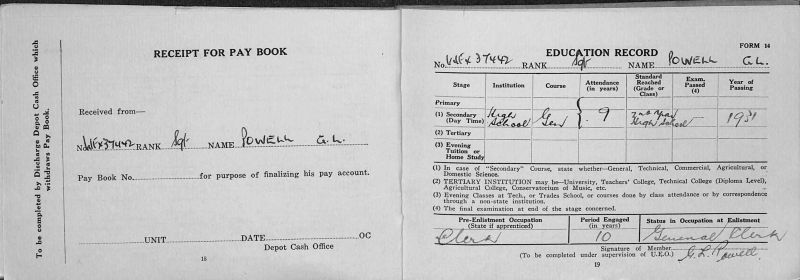 To be completed by Discharge Depot Cash Office which
withdraws Pay Book.
RECEIPT FOR PAY BOOK
Received from—
No. WFX37442 RANK Sgt NAME POWELL G.L.
Pay Book No. for purpose of finalizing his pay account.
UNIT DATE OC
Depot Cash Office
18
FORM 14
EDUCATION RECORD
No. WFX37442 RANK Sgt NAME POWELL G.L.
Stage Institution Course Attendance (in years) Standard Reached (Grade or Class) Exam. Passed (4) Year of Passing
Primary
(1) Secondary (Day Time) High School Gen 9 2nd Year High School 1931
(2) Tertiary
(3) Evening Tuition or Home Study
(1) In case of "Secondary" Course, state whether—General, Technical, Commercial, Agricultural, or
Domestic Science.
(2) TERTIARY INSTITUTION may be—University, Teachers' College, Technical College (Diploma Level),
Agricultural College, Conservatorium of Music, etc.
(3) Evening Classes at Tech., or Trades School, or courses done by class attendance or by correspondence
through a non-state institution.
(4) The final examination at end of the stage concerned.
Pre-Enlistment Occupation (State if apprenticed) Period Engaged (in years) Status in Occupation at Enlistment
Clerk 10 General Clerk
Signature of Member G.L. Powell.
(To be completed under supervision of U.E.O.)
19